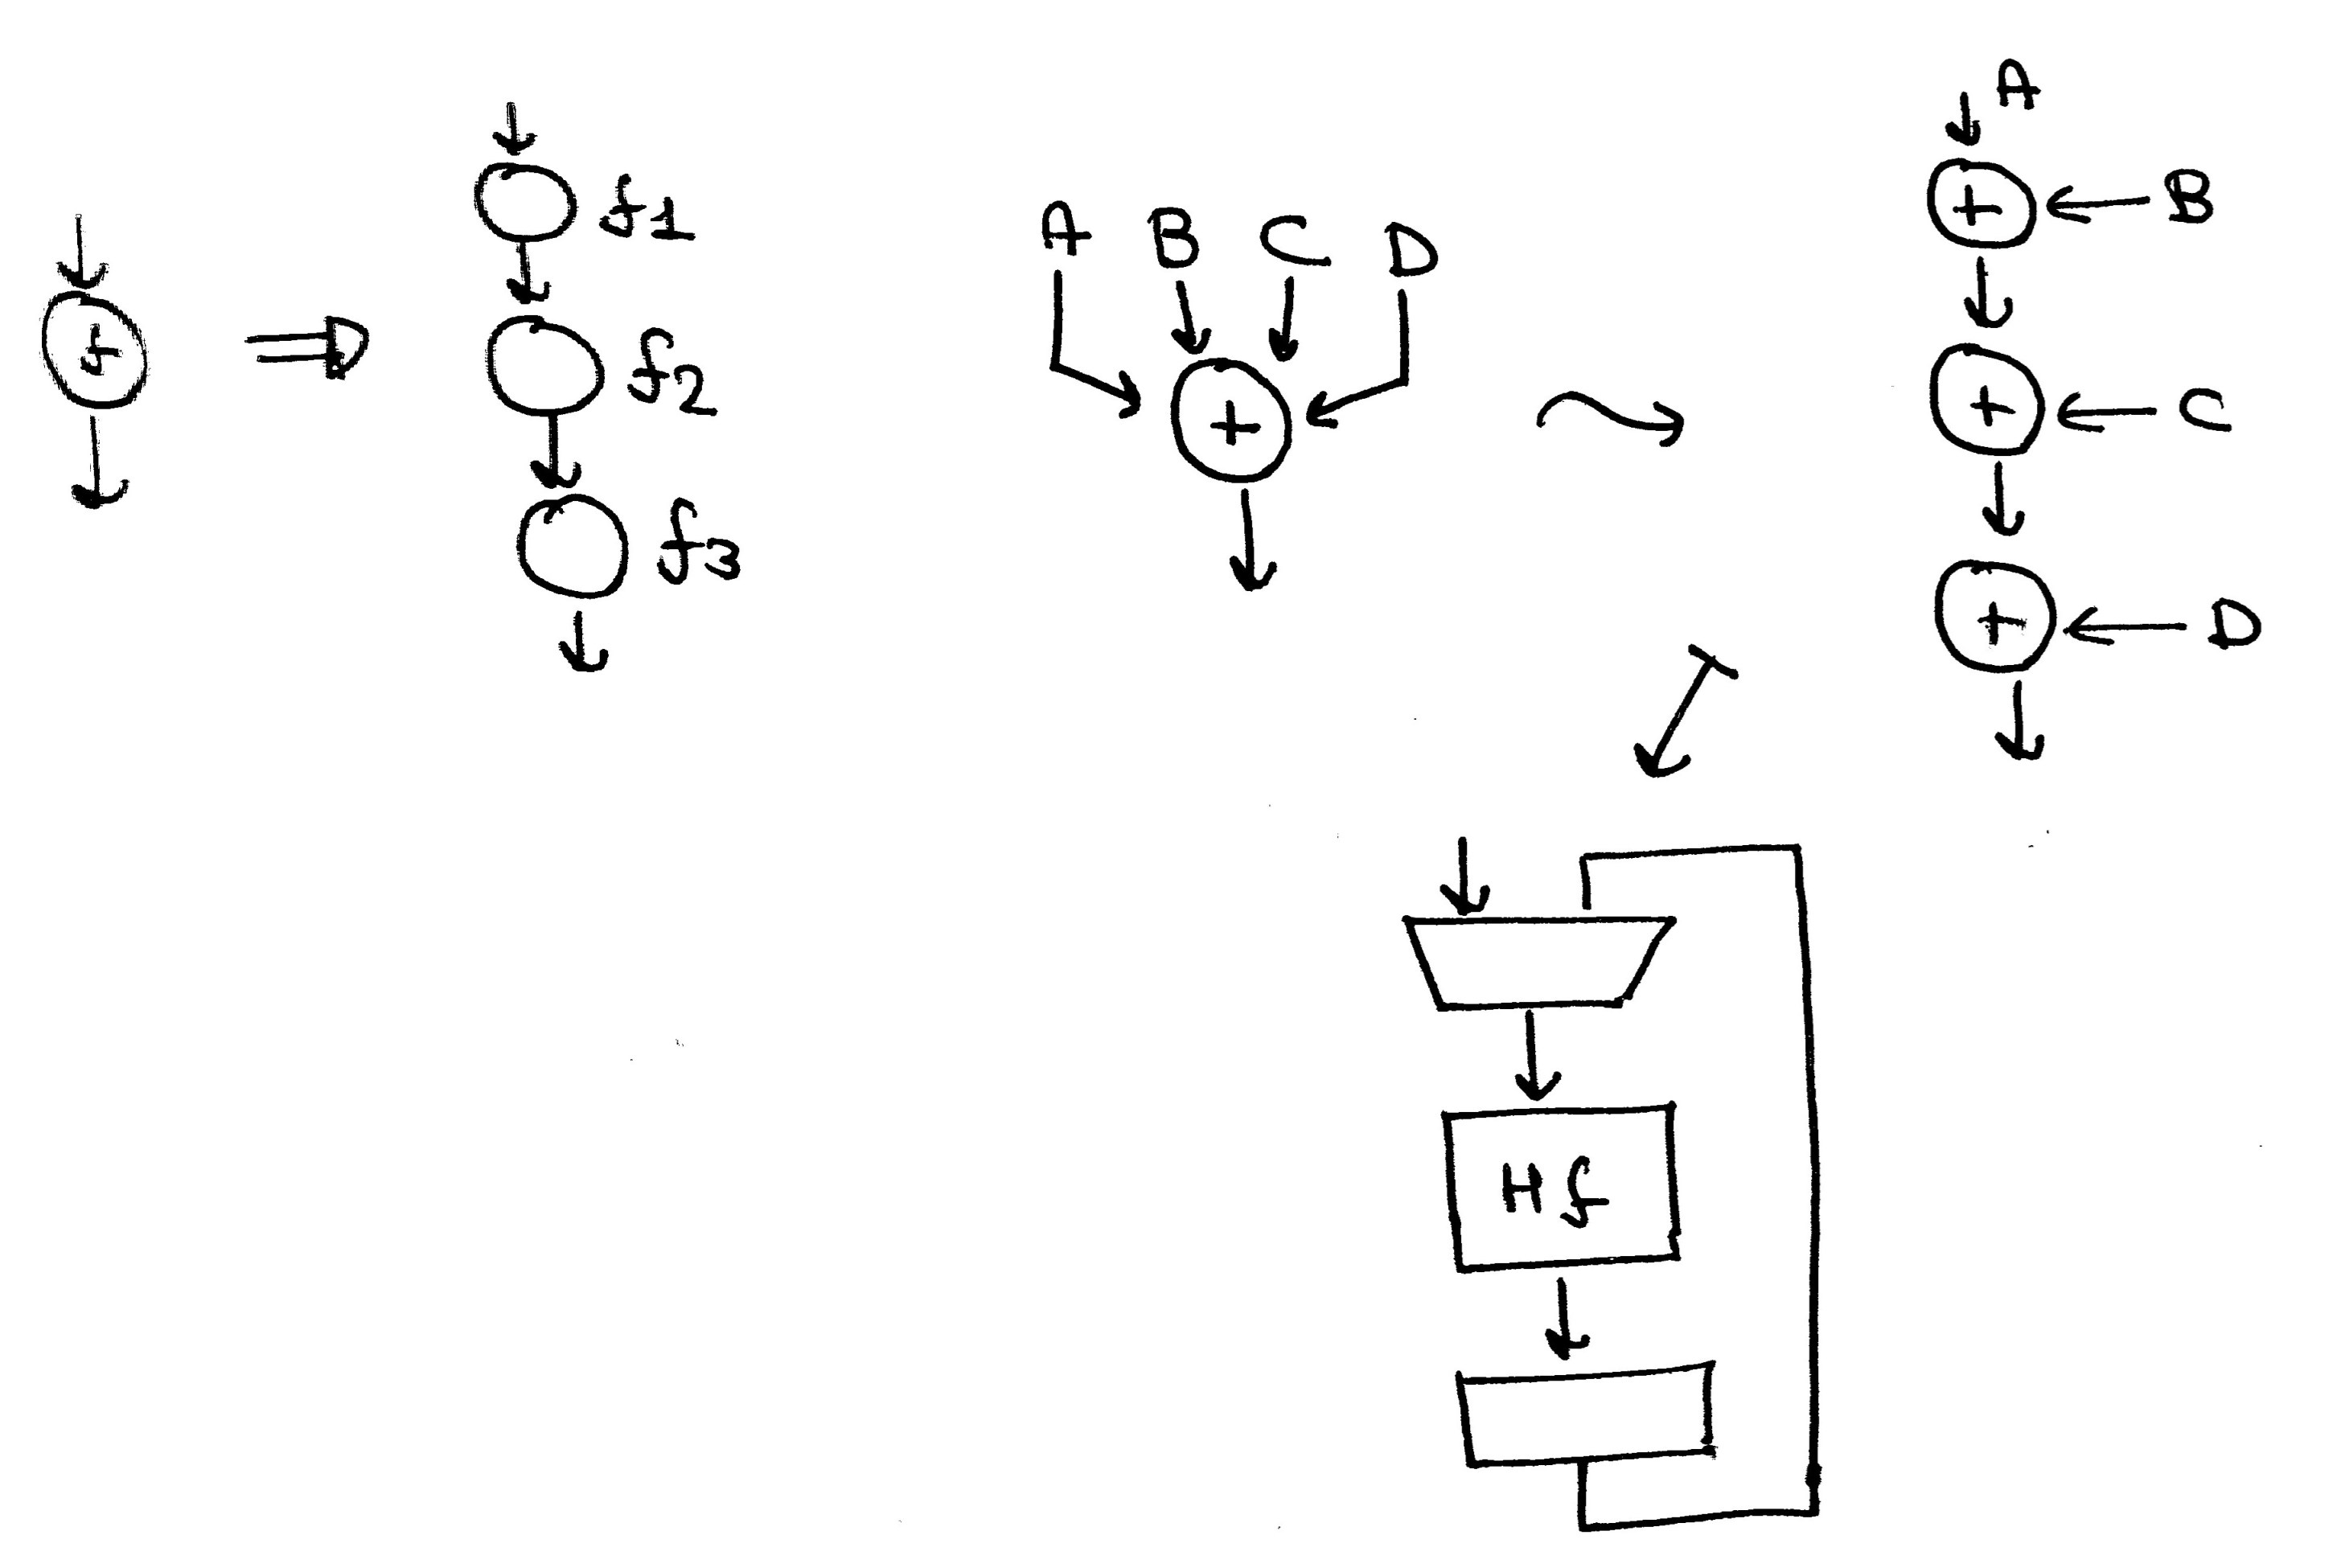 f
f1
f2
f3
A B C D
+
A
+ B
+ C
+ D
Hf